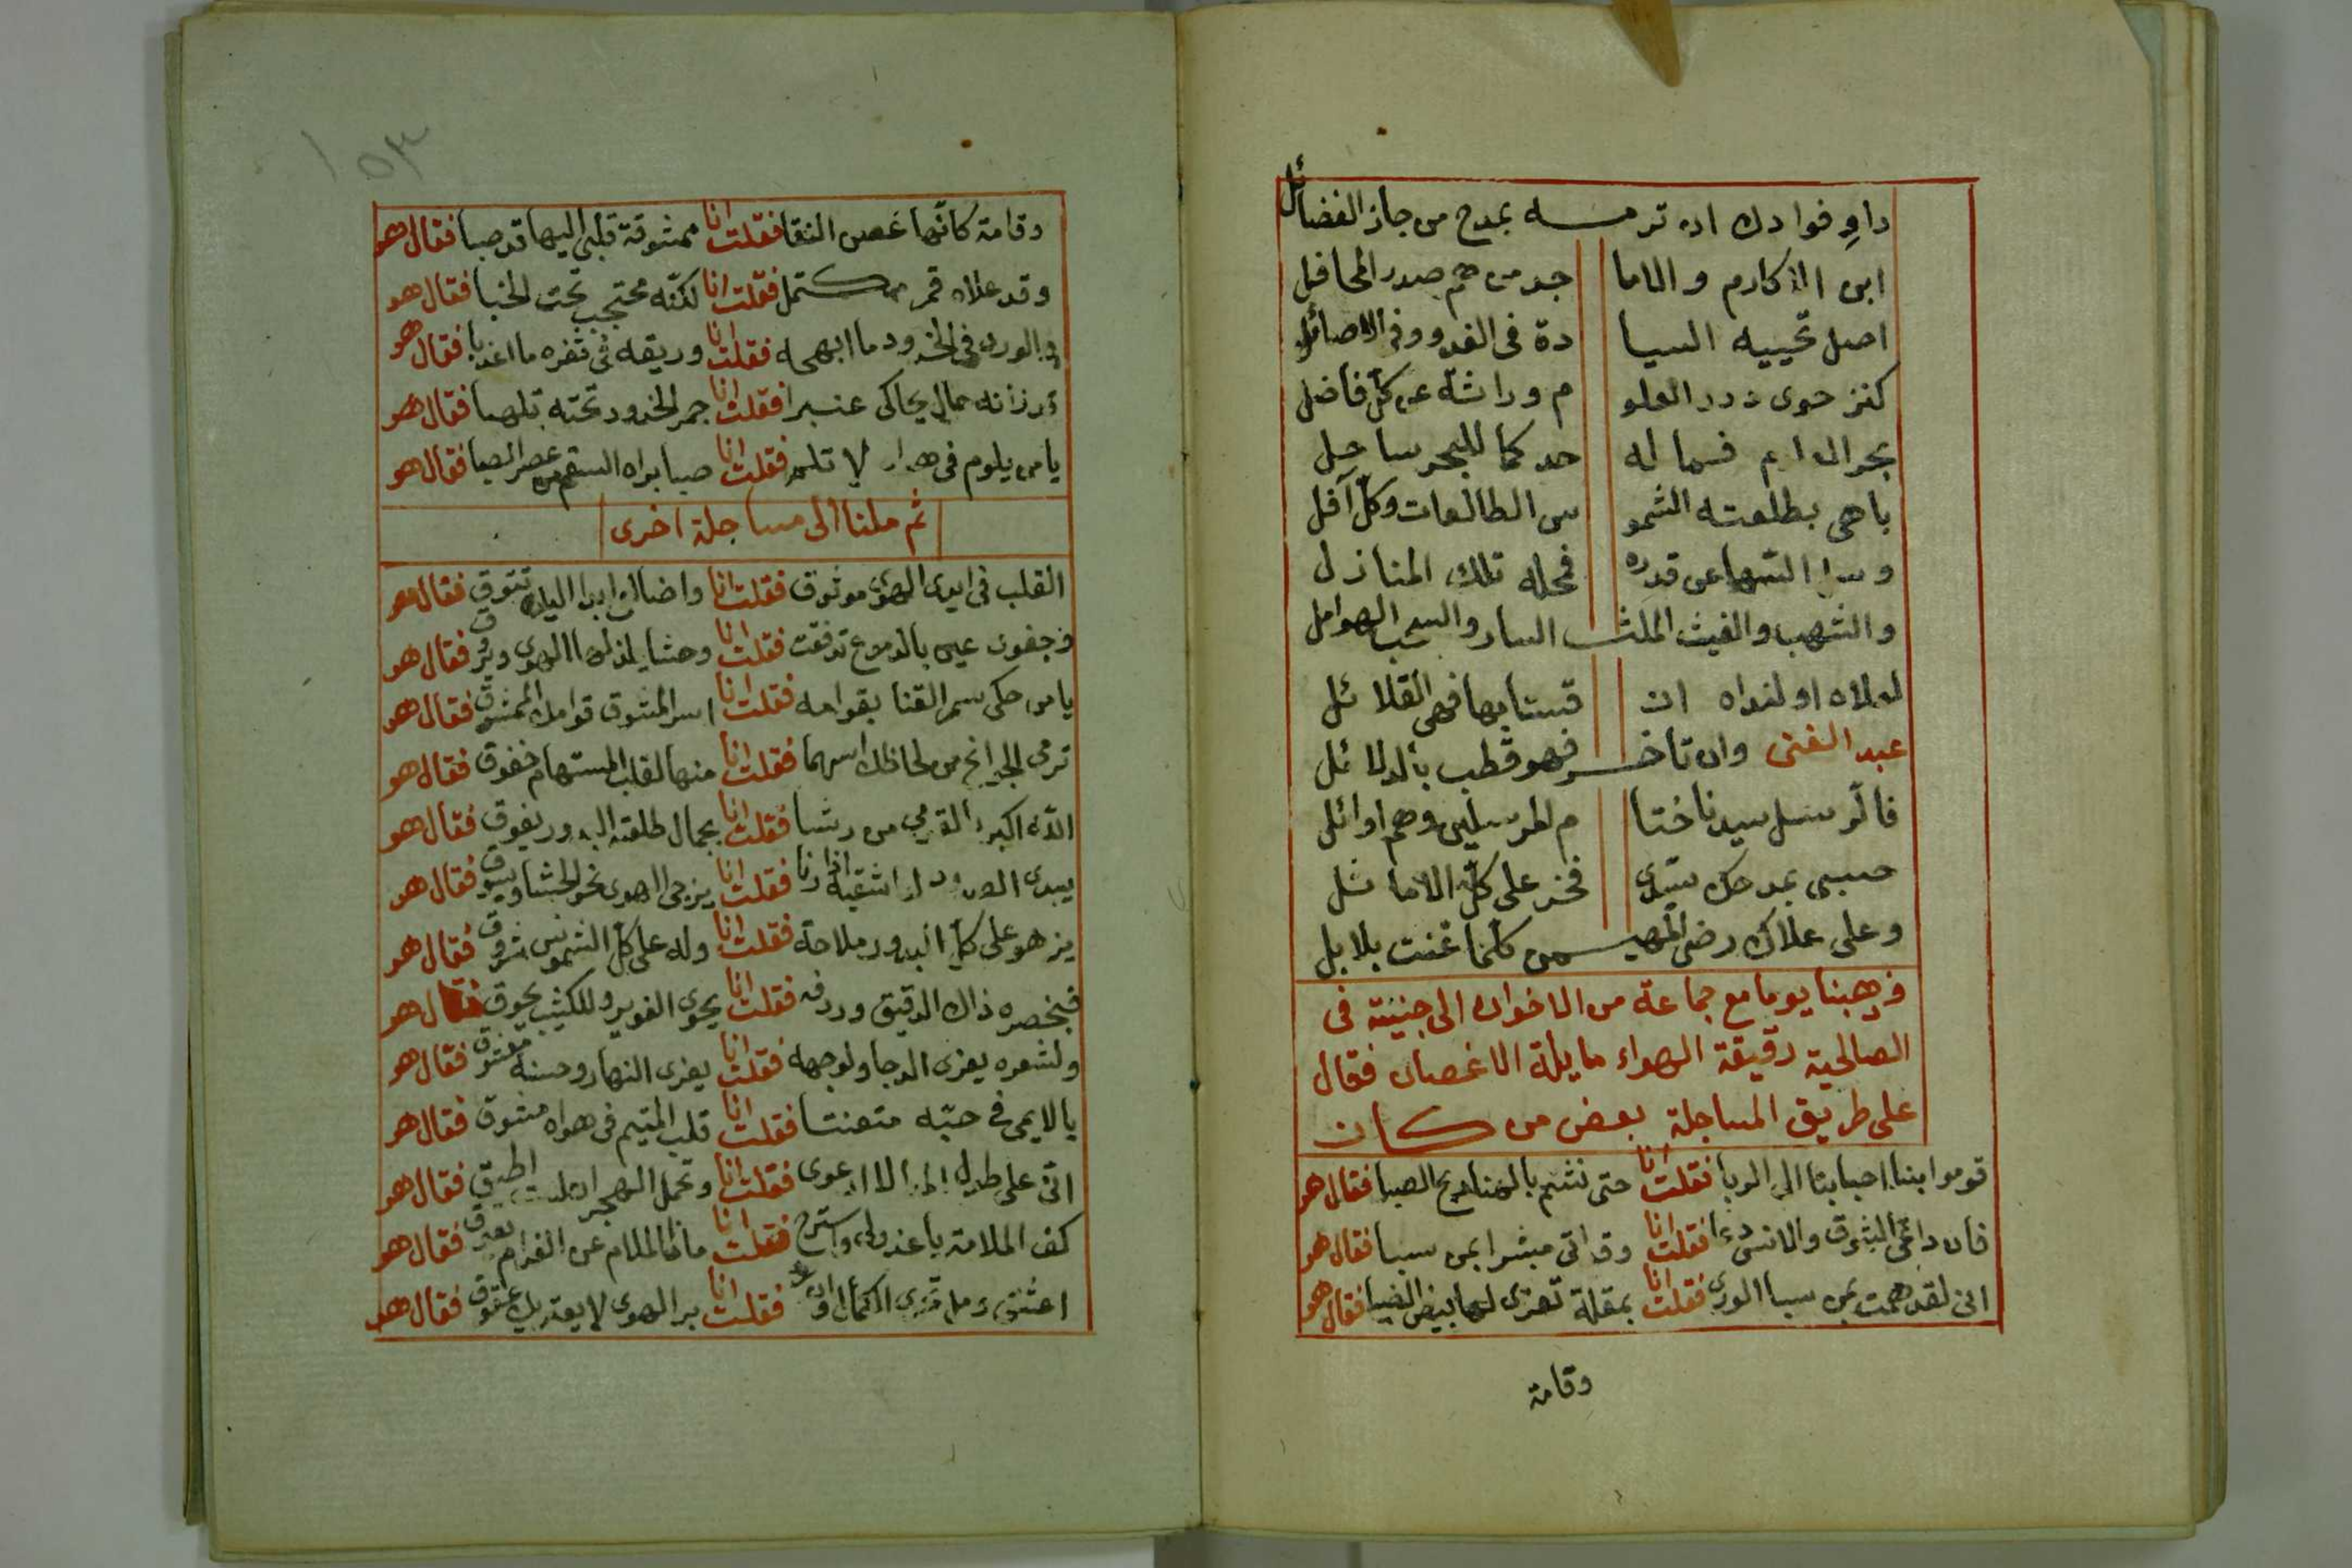 داوِ فوادك ان ترمـــه بمدح من حاز الفضائل
ابن الاكارم والاما جد من هم صدر المحافل
اصل تحييه السيا دة فى الغدو وفى الاصائل
كنز حوى درر العلو م وراثة عن كل فاضل
بحر فما له حد كما للبحر ساحل
باهى بطلعته الشمو س الطالعات وكل آفل
وسل السها عن قدره فمحله تلك المنازل
والشهب والغيث الملث السار والسحب الهوامل
لعلاه او لنداه ان قستا بها فهى القلائل
عبد الغنى وان تاخـــر فهو قطب بالدلائل
فالرسل سيدنا ختا م المرسلين وهم اوائل
حسبى بمدحك سيدى فخر على كل الاماثل
وعلى علاك رضى المهيـــمن كلما غنت بلابل
وذهبنا يوما مع جماعة من الاخوان الى جنينة فى
الصالحية رقيقة الهواء مايلة الاغصان فقال
على طريق المساجلة بعض من كان
قوموا بنا احبابنا الى الربا فقلت انا حتى نشم بالهنا ريح الصبا فقال هو
فان داعى الشوق والانس دعا فقلت انا وقد اتى مبشرا بمن سبا فقال هو
انى لقد همت بمن سبا الورى فقلت انا بمقلة تعزى لها بيض الضبا فقال هو
وقامة
١٥٣
وقامة كانها غصن النقا فقلت انا ممشوقة قلبى اليها قد صبا فقال هو
وقد علاه قمر مكتمل فقلت انا لكنه محتجب تحت الخبا فقال هو
والورد فى الخدود ما ابهجه فقلت انا وريقه فى ثغره ما اعذبا فقال هو
خال يحاكى عنبرا فقلت انا جمر الخدود تحته تلهبا فقال هو
يا من يلوم فى هواه لا تلم فقلت انا صبا براه السقم من عصر الصبا فقال هو
ثم ملنا الى مساجلة اخرى
القلب فى ايدى الهوى موثوق فقلت انا واضالع ابدا اليك تتوق فقال هو
وجفون عينى بالدموع تدفقت فقلت انا وحشا يلذ لها الهوى ويروق فقال هو
يا من حكى سمر القنا بقوامه فقلت انا اسر المشوق قوامك الممشوق فقال هو
ترمى الجوانح من لحاظك اسهما فقلت انا منها لقلب المستهام خفوق فقال هو
الله اكبر القومى من رشا فقلت انا بجمال طلعته البدور يفوق فقال هو
يبدى الصدود لعاشقيه اذا رنا فقلت انا يزجى الهوى نحو الحشا ويسوق فقال هو
يزهو على كل البدور ملاحة فقلت انا وله على كل الشموس شروق فقال هو
فبخصره ذاك الدقيق وردفه فقلت انا يحوى الغوير وللكثيب يحوق فقال هو
ولشعره يعزى الدجا ولوجهه فقلت انا يعزى النهار وحسنه معشوق فقال هو
يا لايمى فى حبه متعنتا فقلت انا قلب المتيم فى هواه مشوق فقال هو
انى على فقلت انا وتحمل الهجران لست اطيق فقال هو
كف الملامة يا عذولى واسترح فقلت انا ماذا الملام عن الغرام يعوق فقال هو
فقلت انا بر الهوى لا يعتريك عقوق فقال هو